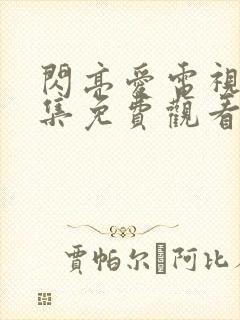 閃亮愛電視
集免費觀看
賈帕尔·阿比